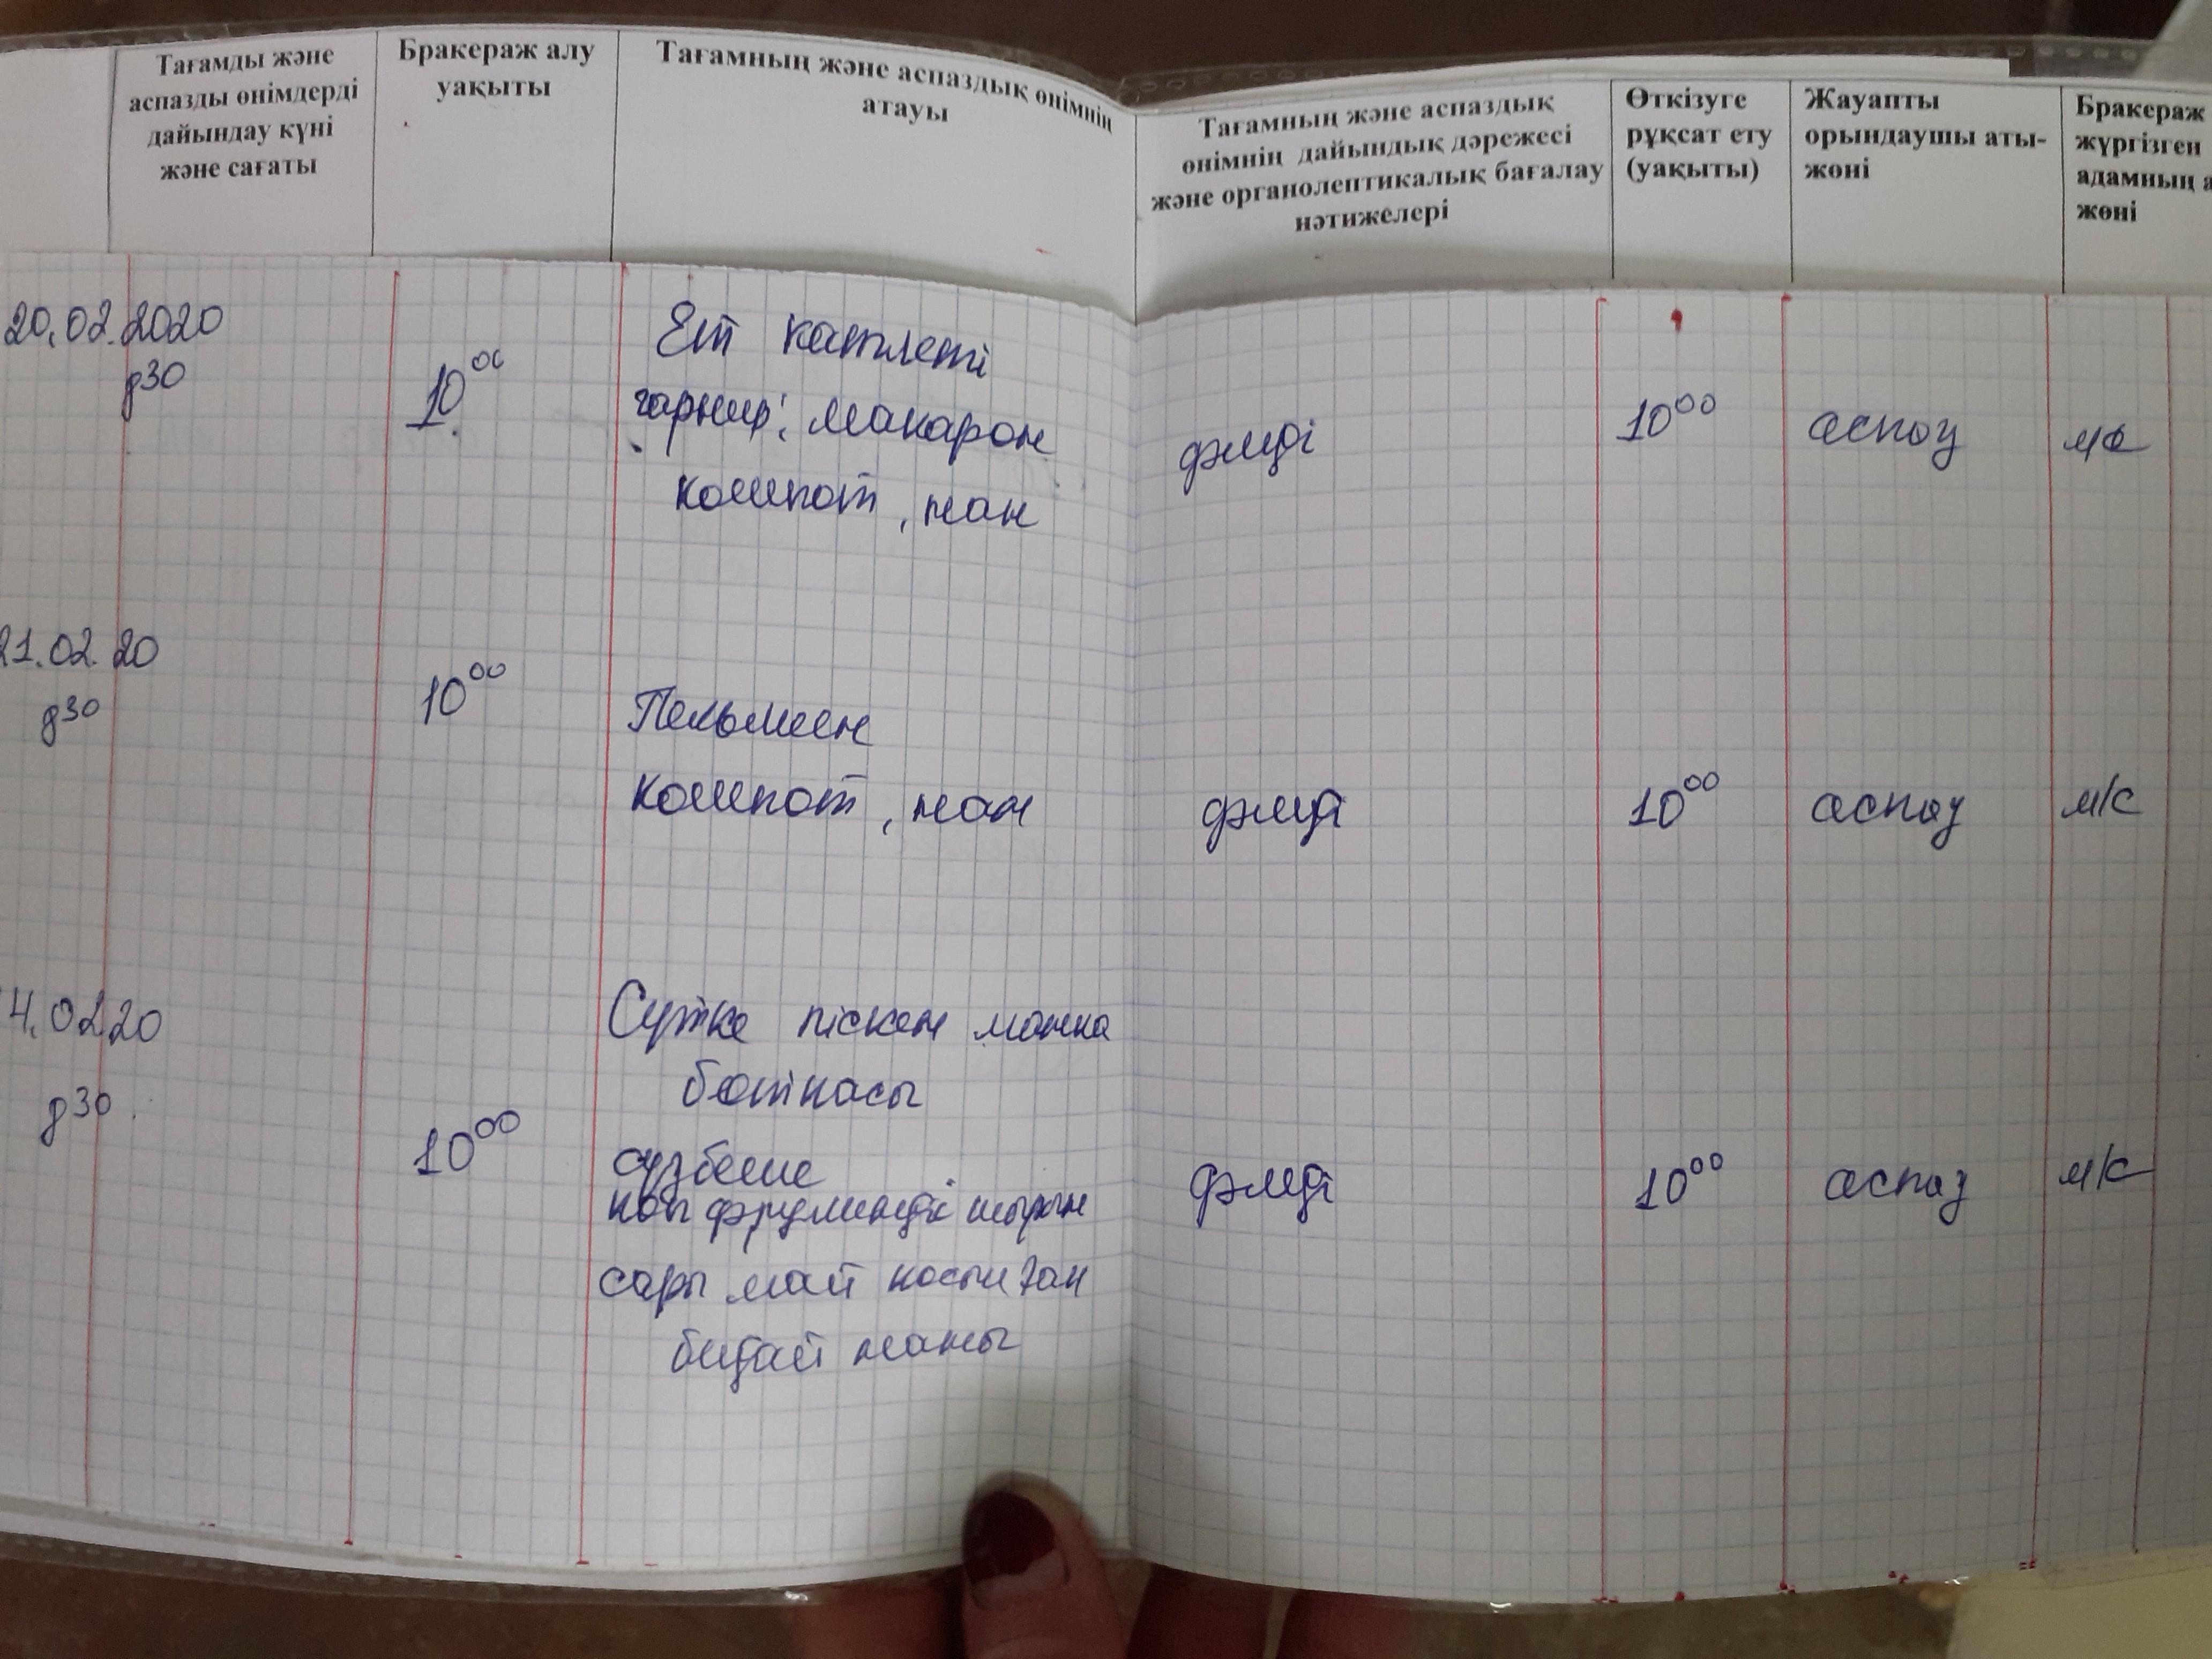 Тағамды және
аспазды өнімдерді
дайындау күні
және сағаты
Бракераж алу
уақыты
Тағамның және аспаздық өнімнің
атауы
Тағамның және аспаздық
өнімнің дайындық дәрежесі
және органолептикалық бағалау
нәтижелері
Өткізуге
рұқсат ету
(уақыты)
Жауапты
орындаушы аты-
жөні
Бракераж
жүргізген
адамның а
жөні
20.02.2020
8 30
10 00
Ет катлеті
гарнир: макарон
компот, нан
дәмді
10 00
аспаз
м/с
21.02.20
8 30
10 00
Пельмен
компот, нан
дәмді
10 00
аспаз
м/с
4.02.20
8 30
10 00
Сүтке піскен манка
ботқасы
сүзбеше
көп дәруменді шырын
сары май қосылған
бидай наны
дәмді
10 00
аспаз
м/с